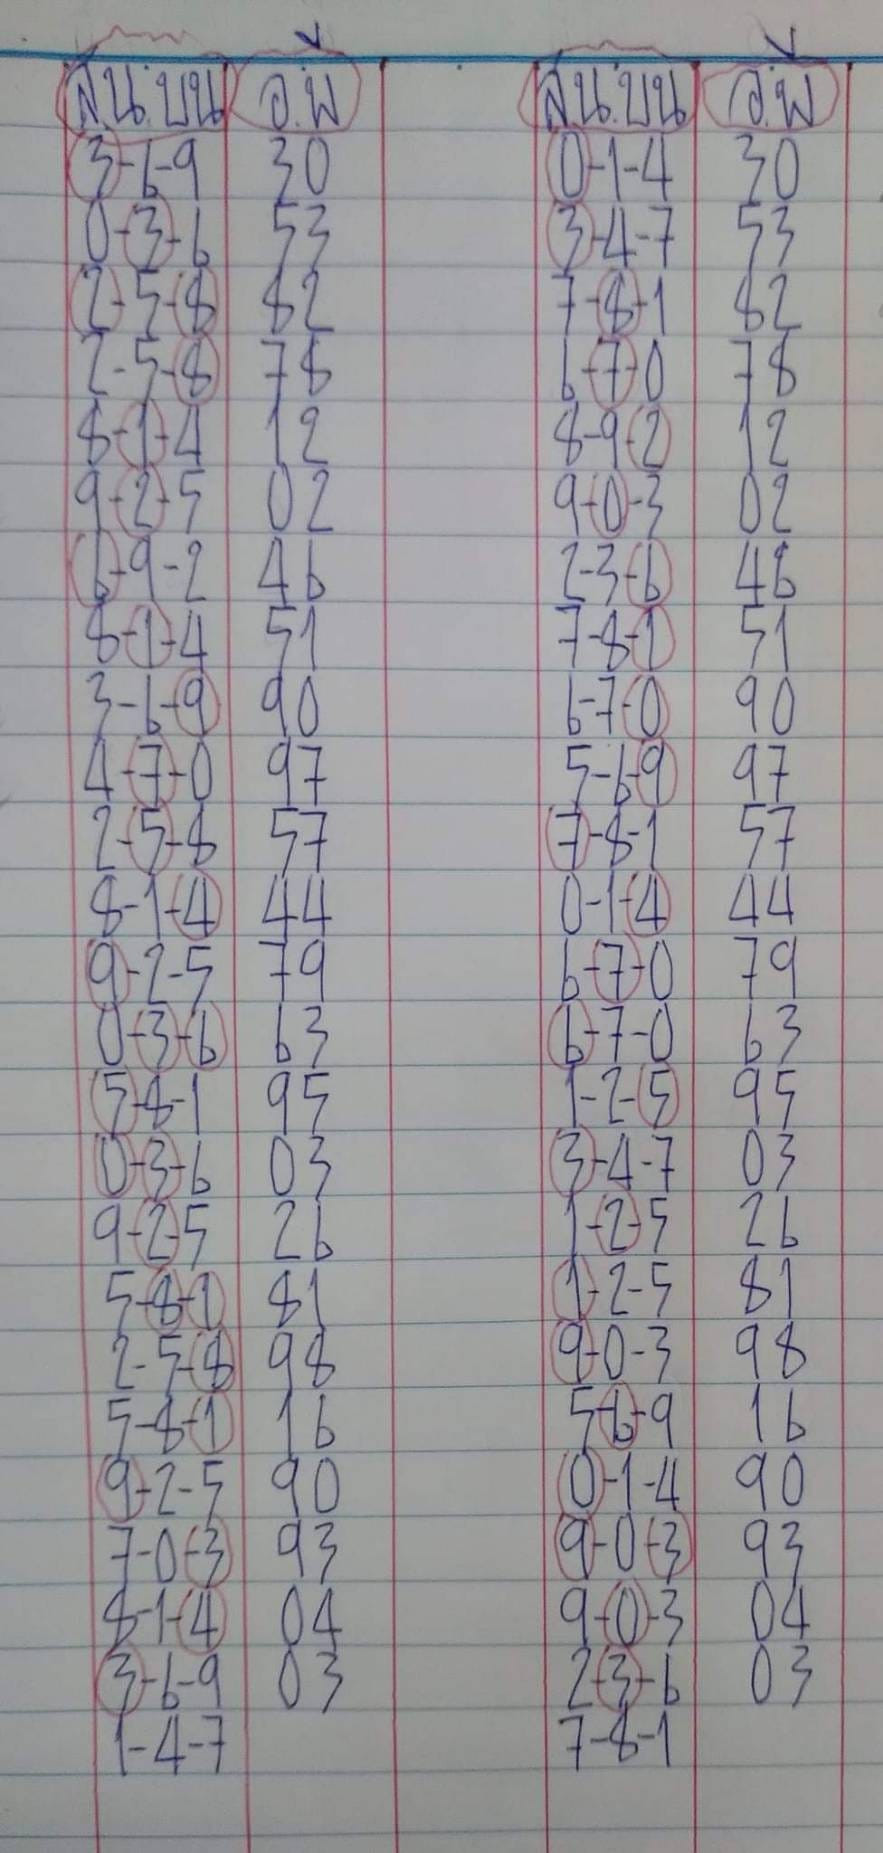 ส.น.บน อ.พ ส.น.บน อ.พ
3-6-9 30 0-1-4 30
0-3-6 53 3-4-7 53
2-5-8 82 7-8-1 82
2-5-8 78 6-7-0 78
8-1-4 12 8-9-2 12
9-2-5 02 9-0-3 02
6-9-2 46 2-3-6 46
8-1-4 51 7-8-1 51
3-6-9 90 6-7-0 90
4-7-0 97 5-6-9 97
2-5-8 57 7-8-1 57
8-1-4 44 0-1-4 44
9-2-5 79 6-7-0 79
0-3-6 63 6-7-0 63
5-8-1 95 1-2-5 95
0-3-6 03 3-4-7 03
9-2-5 26 1-2-5 26
5-8-1 81 1-2-5 81
2-5-8 98 9-0-3 98
5-8-1 16 5-6-9 16
9-2-5 90 0-1-4 90
7-0-3 93 9-0-3 93
8-1-4 04 9-0-3 04
3-6-9 03 2-3-6 03
1-4-7 7-8-1